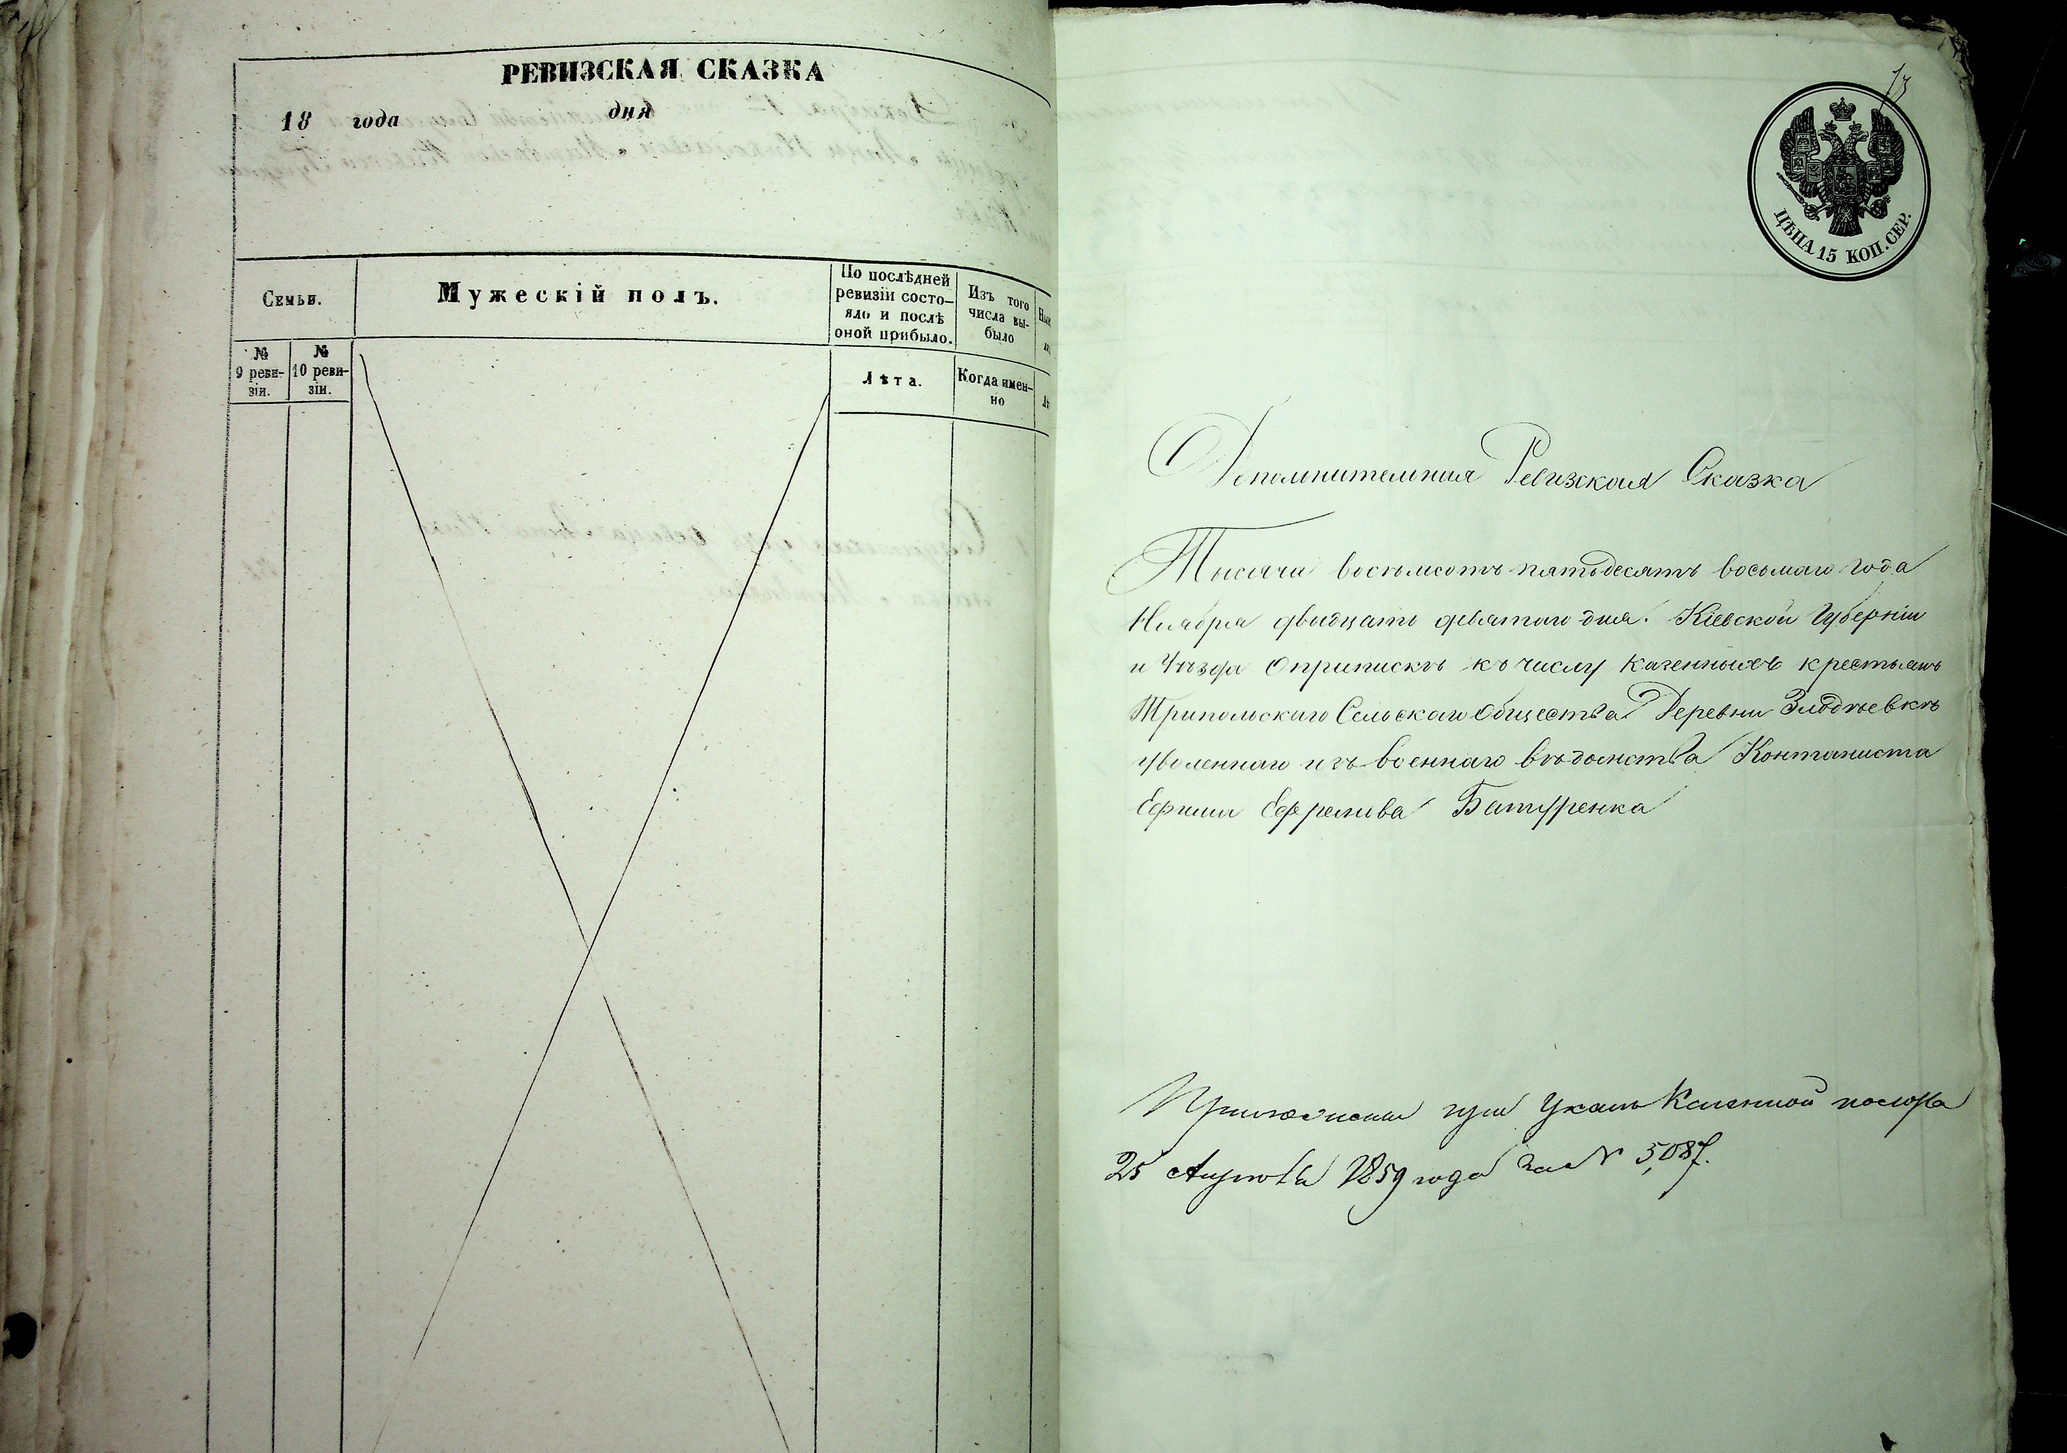 РЕВИЗСКАЯ СКАЗКА
18 года дня
Семьи.
Мужескій полъ.
По послѣдней
ревизіи состо-
яло и послѣ
оной прибыло.
Изъ того
числа вы-
было
№
9 реви-
зіи.
№
10 реви-
зіи.
Лѣта.
Когда имен-
но
73
ЦѢНА 15 КОП. СЕР.
Дополнительная Ревизская Сказка
Тысячи восемьсотъ пятьдесятъ восьмаго года
Ноября двадцать девятаго дня. Кіевской Губерніи
и Уѣзда о припискѣ къ числу казенныхъ крестьянъ
Трипольскаго Сельскаго Общества Деревни Злодѣевкѣ
уволеннаго изъ военнаго вѣдомства Кантониста
Ефима Ефремова Батуренка
при Указѣ Казенной палаты
25 Августа 1859 года за № 5,087.